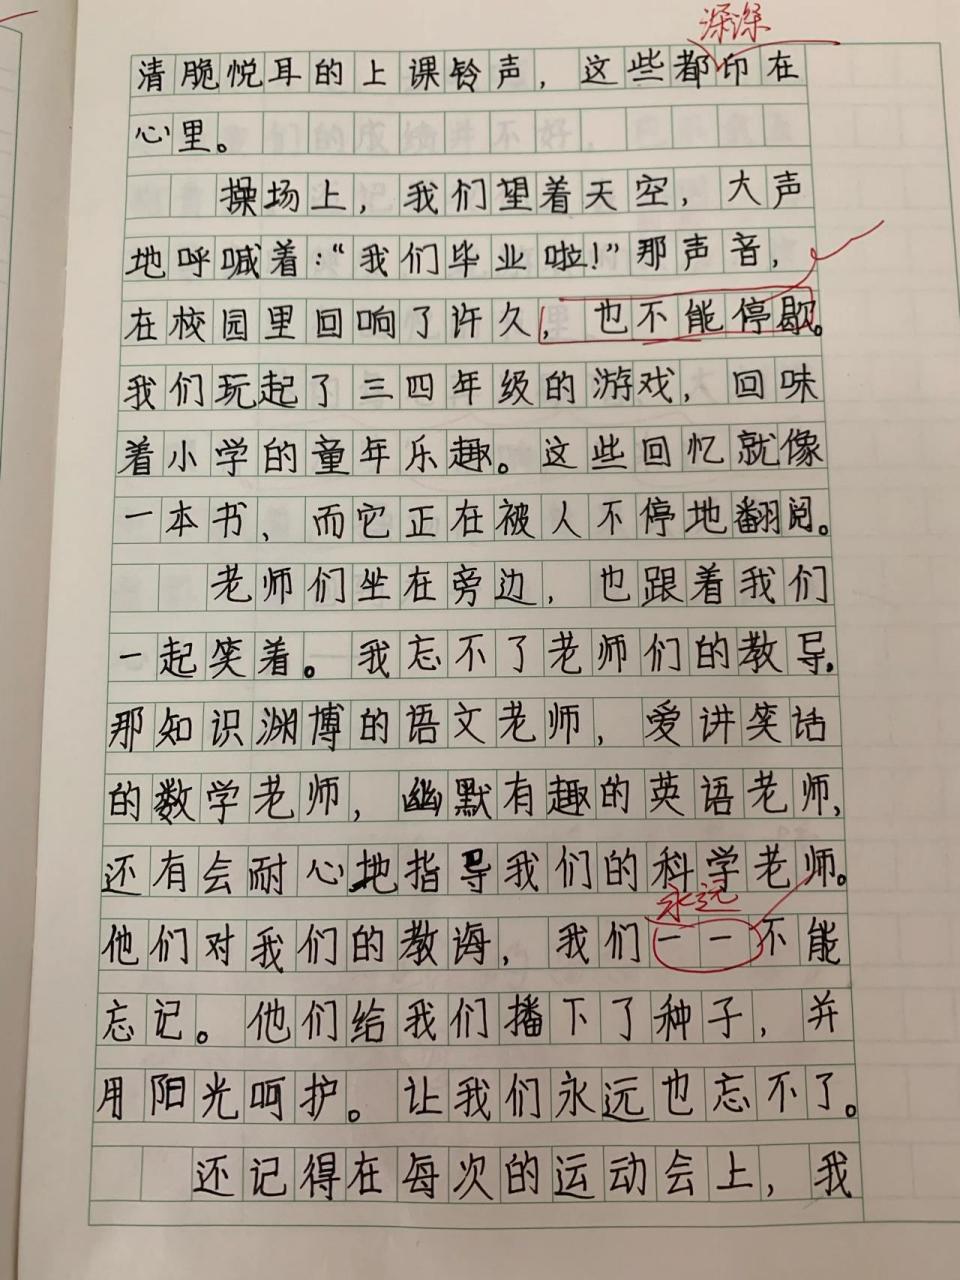 深深
清脆悦耳的上课铃声，这些都印在
心里。
操场上，我们望着天空，大声
地呼喊着：“我们毕业啦！”那声音，
在校园里回响了许久，也不能停歇。
我们玩起了三四年级的游戏，回味
着小学的童年乐趣。这些回忆就像
一本书，而它正在被人不停地翻阅。
老师们坐在旁边，也跟着我们
一起笑着。我忘不了老师们的教导，
那知识渊博的语文老师，爱讲笑话
的数学老师，幽默有趣的英语老师，
还有会耐心地指导我们的科学老师。
永远
他们对我们的教诲，我们一一不能
忘记。他们给我们播下了种子，并
用阳光呵护。让我们永远也忘不了。
还记得在每次的运动会上，我